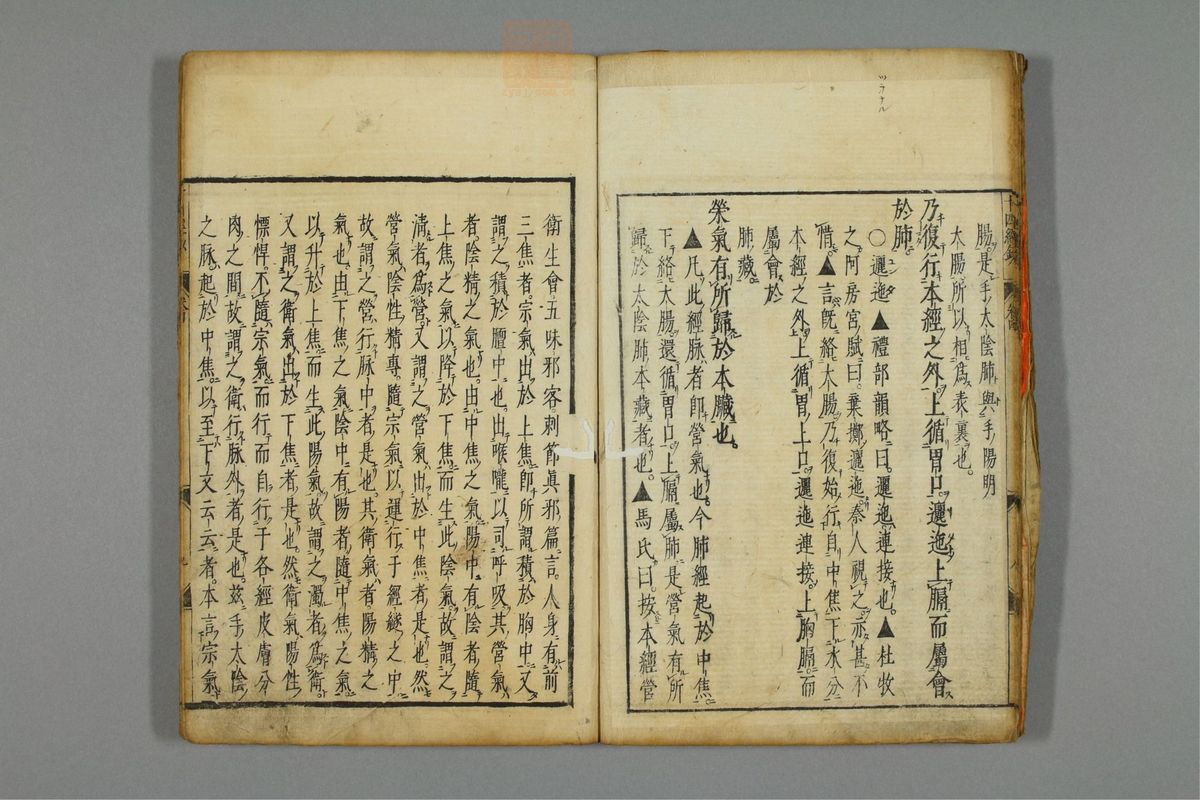 腸。是手太陰肺與手陽明
大腸所以相為表裏也。
乃復行本經之外。上循胃口。邐迤上膈而屬會
於肺。
〇邐迤▲禮部韻略曰。邐迤。連接也。▲杜牧
之阿房宮賦曰。棄擲邐迤。秦人視之。亦甚不
惜。▲言既絡大腸。乃復始行自中焦下水分
本經之外。上循胃上口。邐迤連接。上胸膈。而
屬會於
肺藏。
榮氣有所歸於本臟也。
▲凡此經脉者即營氣也。今肺經起於中焦。
下絡大腸。還循胃口。上膈屬肺。是營氣有所
歸於太陰肺本藏者也。▲馬氏曰。按本經營
衛生會。五味邪客。刺節眞邪篇言。人身有前
三焦者。宗氣出於上焦。即所謂積於胸中。又
謂之積於膻中也。出喉嚨以司呼吸。其營氣
者陰精之氣也。由中焦之氣陽中有陰者。隨
上焦之氣。以降於下焦。而生此陰氣。故謂之
清者為營。又謂之營氣出於中焦者是也。然
營氣陰性精專。隨宗氣以運行于經緫之中。
故謂之營行脉中者是也。其衛氣者陽精之
氣也。由下焦之氣陰中有陽者。隨中焦之氣。
以升於上焦。而生此陽氣。故謂之濁者為衛。
又謂之衛氣出於下焦者是也。然衛氣陽性
慓悍。不隨宗氣而行。而自行于各經皮膚分
肉之間。故謂之衛行脉外者是也。兹手太陰
之脉。起於中焦。以至下文云云者。本言宗氣